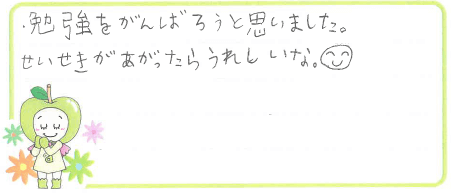 ・勉強をがんばろうと思いました。
せいせきがあがったらうれしいな。